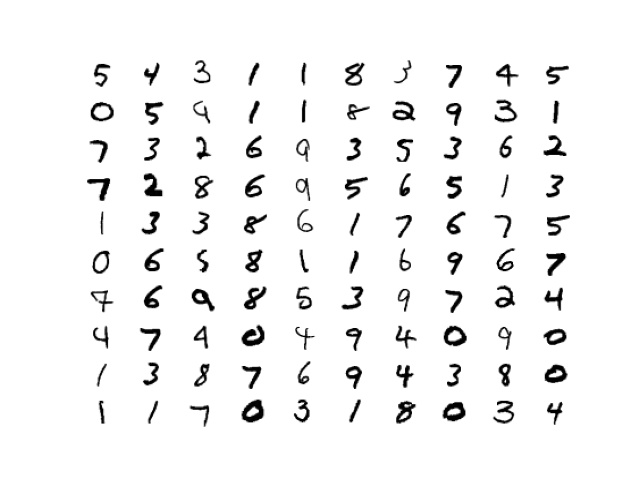 5 4 3 1 1 8 3 7 4 5
0 5 9 1 1 8 2 9 3 1
7 3 2 6 9 3 5 3 6 2
7 2 8 6 9 5 6 5 1 3
1 3 3 8 6 1 7 6 7 5
0 6 5 8 1 1 6 9 6 7
7 6 9 8 5 3 9 7 2 4
4 7 4 0 4 9 4 0 9 0
1 3 8 7 6 9 4 3 8 0
1 1 7 0 3 1 8 0 3 4